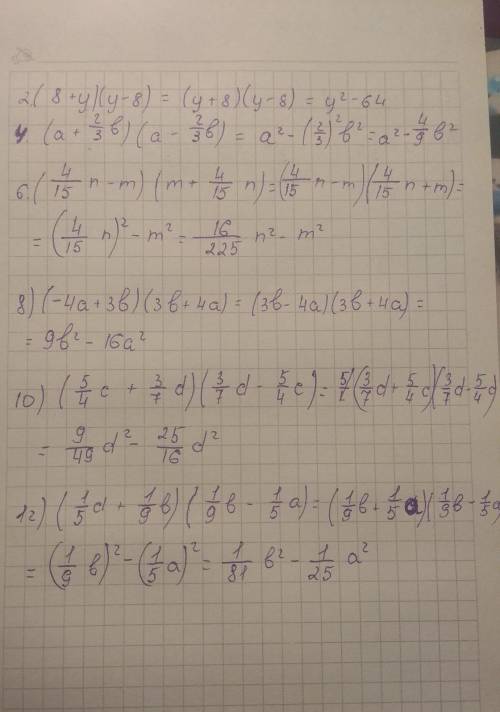 2.(8+y)(y-8) = (y+8)(y-8) = y²-64
4. (a + 2/3 b)(a - 2/3 b) = a² - (2/3)² b² = a² - 4/9 b²
6.(4/15 n - m)(m + 4/15 n) = (4/15 n - m)(4/15 n + m) =
= (4/15 n)² - m² = 16/225 n² - m²
8) (-4a+3b)(3b+4a) = (3b-4a)(3b+4a) =
= 9b² - 16a²
10) (5/4 c + 3/7 d)(3/7 d - 5/4 c) = (3/7 d + 5/4 c)(3/7 d - 5/4 d)
= 9/49 d² - 25/16 d²
12) (1/5 d + 1/9 b)(1/9 b - 1/5 a) = (1/9 b + 1/5 a)(1/9 b - 1/5 a)
= (1/9 b)² - (1/5 a)² = 1/81 b² - 1/25 a²